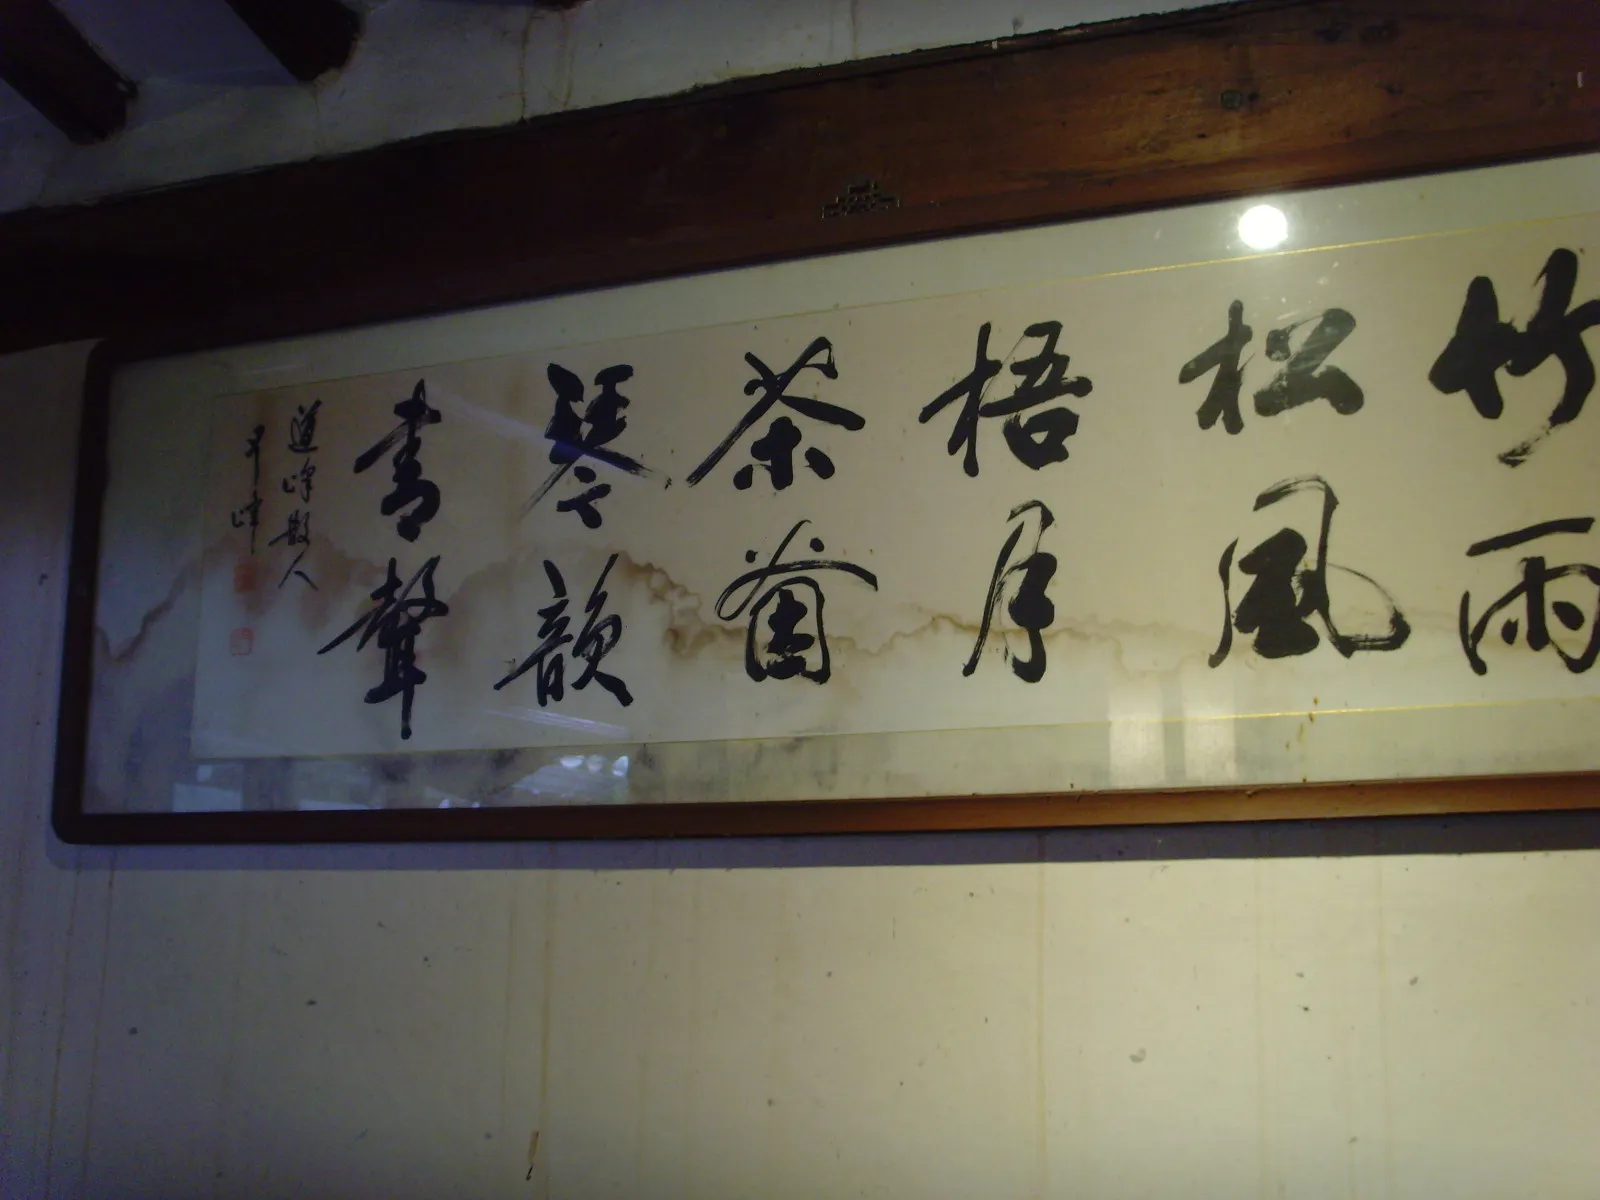 竹雨
松風
梧月
茶䓲
琴韻
書聲
道峰散人